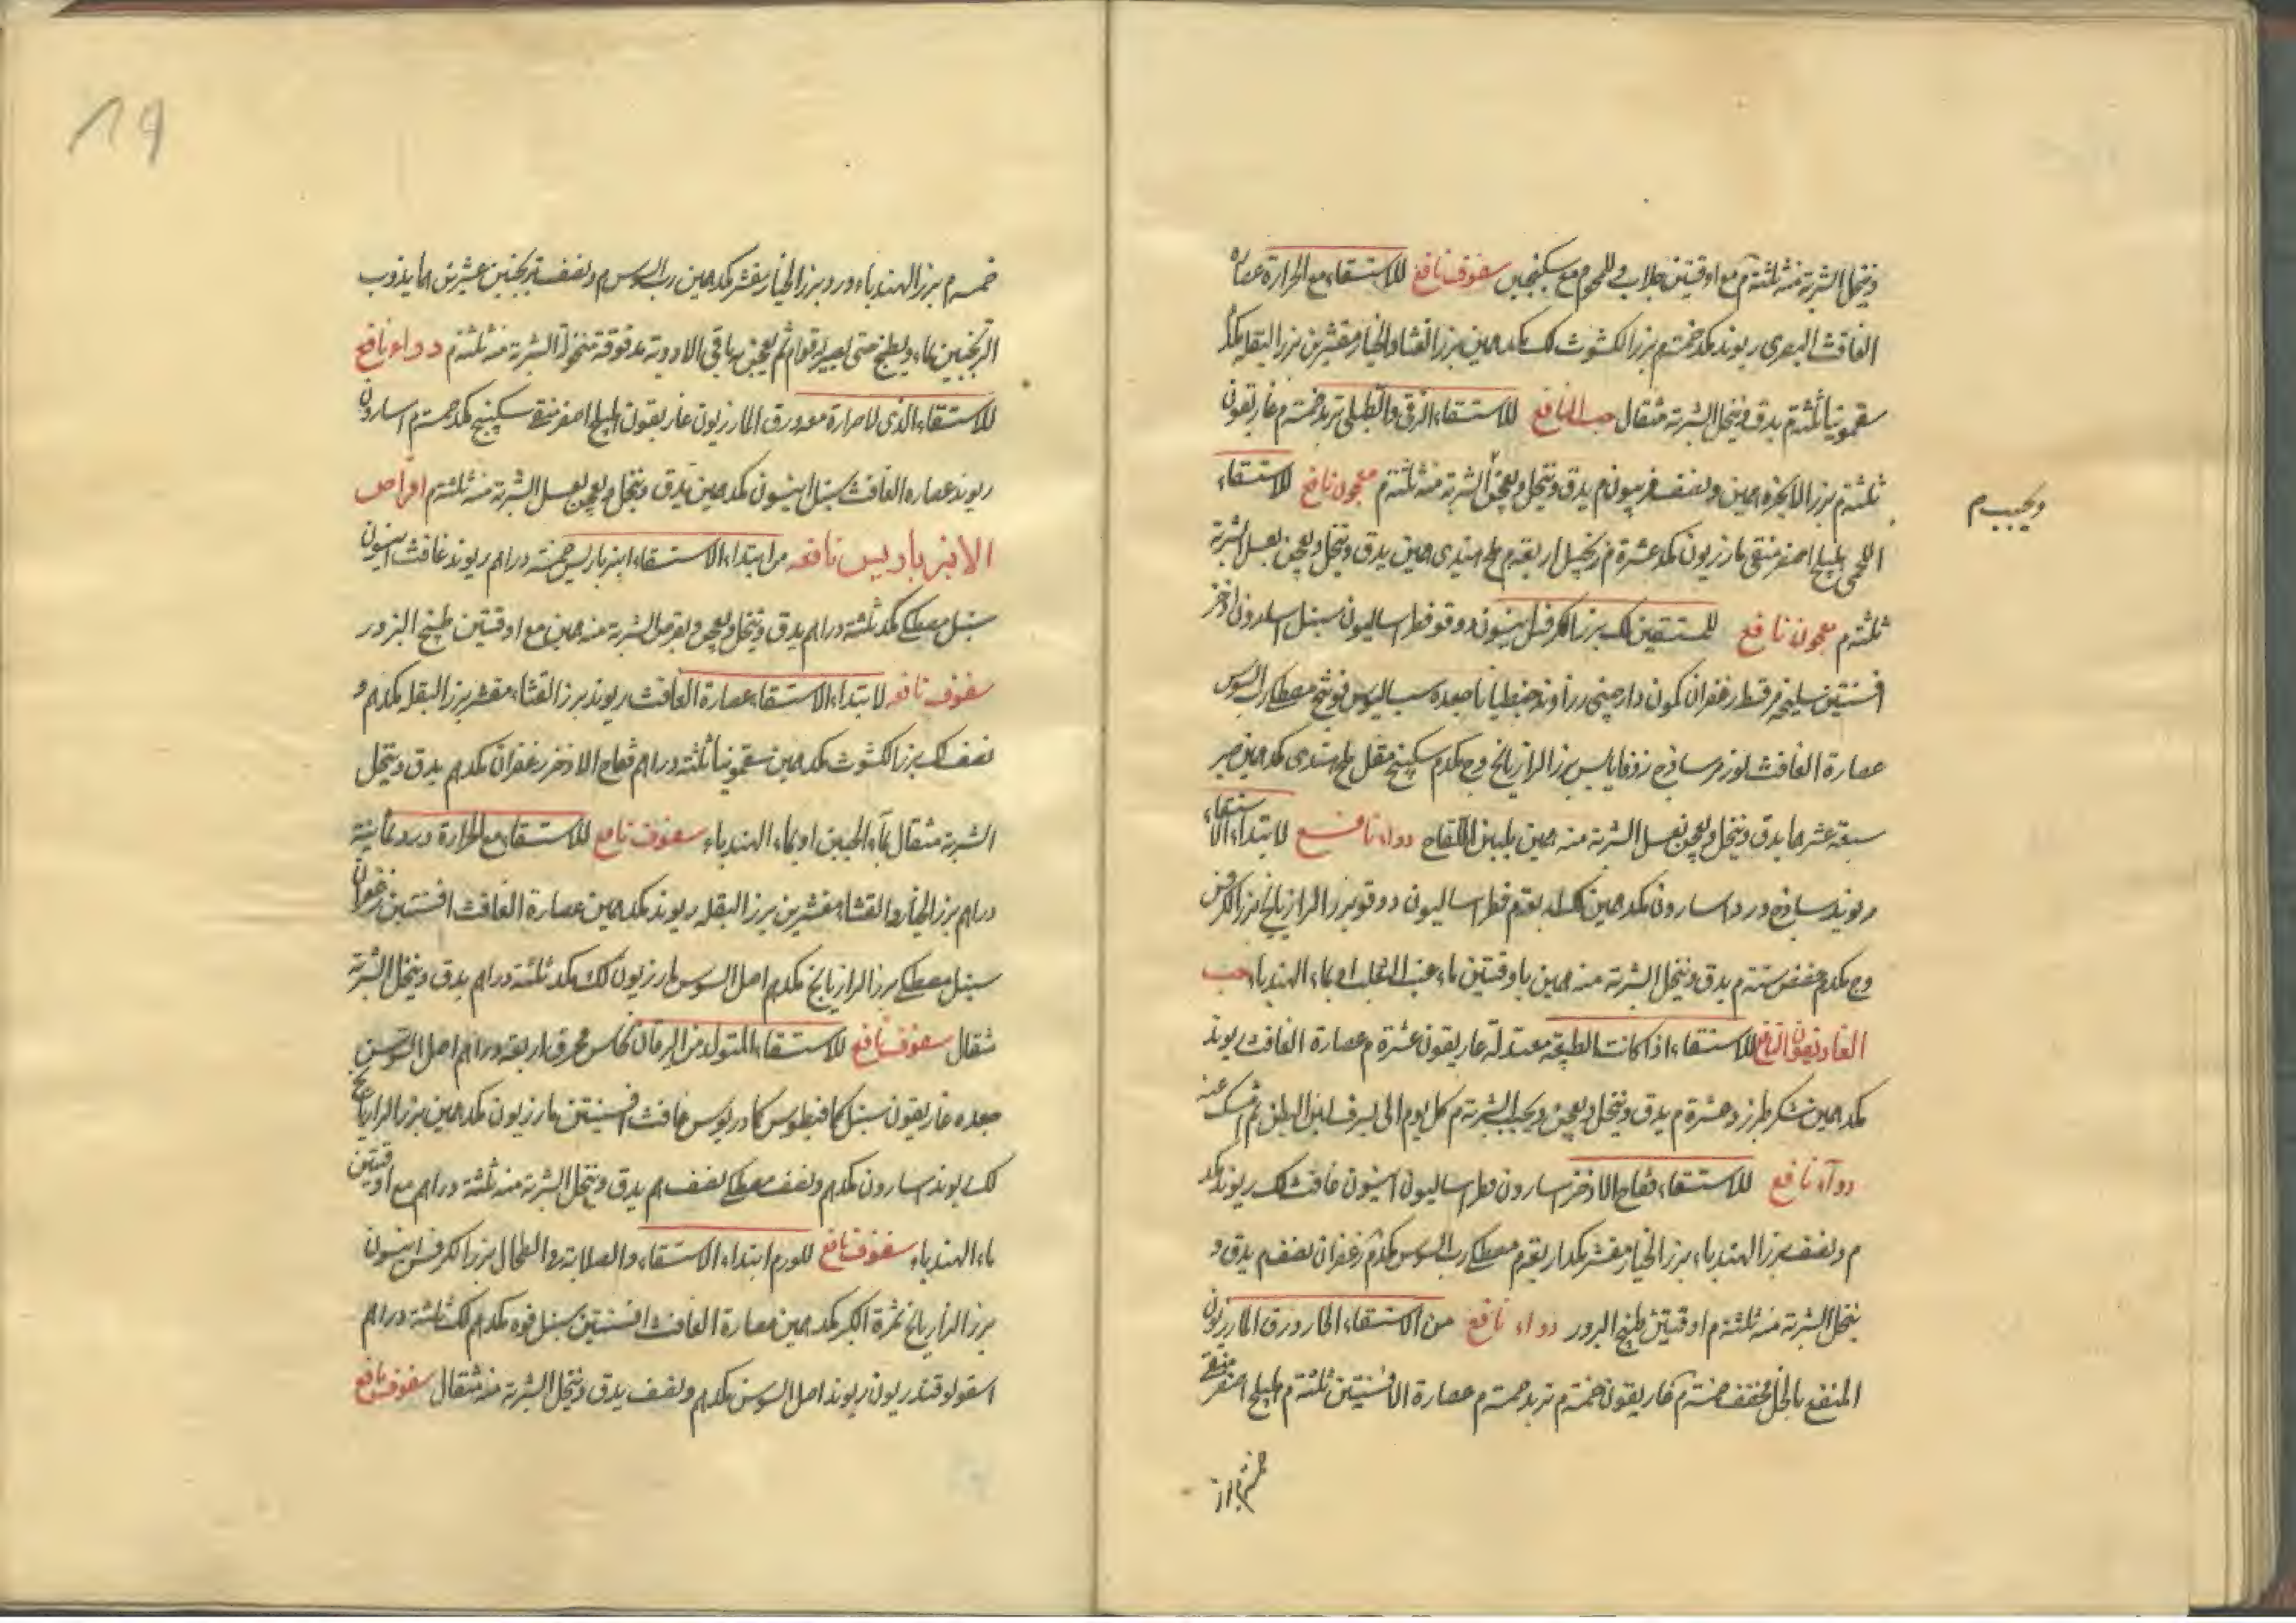 وينخل الشربة منه ثلثة م مع اوقيتين جلاب وللحم مع سكنجبين سفوف نافع للاستسقاء مع الحرارة عصارة
الغافث البصرى ريوند مكد خمسة م بزر الكشوث لك مكد همين بزر القثا والخيار مقشرين بزر البقله مكد
سقمونيا ثلثة م يدق وينخل الشربة مثقال حب النافع للاستسقاء الزقى والطبلى تربد خمسة م غاريقون
ثلثة م بزر الانجرة همين ونصف فربيون م يدق وينخل ويعجن الشربة منه ثلثة م معجون نافع للاستسقاء
ويحبب م
اللحمى هليلج اصفر منقى مازريون مكد عشرة م زنجبيل اربعة م ملح هندى همين يدق وينخل ويعجن بعسل الشربة
ثلثة م معجون نافع للمستسقين لك بزر الكرفس انيسون دوقو فطراساليون سنبل اسارون اذخر
افسنتين سليخه مر قسط زعفران كمون دارصينى زراوند جنطيانا جعده سساليوس فوتنج مصطكى رب السوس
عصارة الغافث لوز مر ساذج زوفا يابس بزر الرازيانج وج مكد م سكبينج مقل ملح هندى مكد همين صبر
سبعة عشر هما يدق وينخل ويعجن بعسل الشربة منه همين بلبن اللقاح دواء نافع لابتداء الاستسقاء
ريوند ساذج ورد اسارون مكد همين لك اربعة م فطراساليون دوقو بزر الرازيانج بزر الكرفس
وج مكد م عفص ستة م يدق وينخل الشربة منه همين باوقيتين ماء عنب الثعلب او بماء الهندباء حب
الغاريقون النافع للاستسقاء اذا كانت الطبيعة معتدلة غاريقون عشرة م عصارة الغافث ريوند
مكد همين سكر طبرزد عشرة م يدق وينخل ويعجن ويحبب الشربة م كل يوم الى ان يسرف لين البطن ثم امسك عنه
دواء نافع للاستسقاء فقاح الاذخر اسارون فطراساليون انيسون غافث لك ريوند مكد
م ونصف بزر الهندباء بزر الخيار مقشر مكد اربعة م مصطكى رب السوس مكد م زعفران نصف م يدق و
ينخل الشربة منه ثلثة م اوقيتين طبيخ البزور دواء نافع من الاستسقاء الحار ورق المازريون
المنقع بالخل مجفف خمسة م غاريقون خمسة م تربد خمسة م عصارة الافسنتين ثلثة م هليلج اصفر منقى
خمسة م بزر الهندباء ورد بزر الخيار مقشر مكد همين رب السوس م ونصف ترنجبين عشرين هما يذوب
الترنجبين بماء ويطبخ حتى يصير له قوام ثم يعجن به باقى الادوية مدقوقة منخولة الشربة منه ثلثة م دواء نافع
للاستسقاء الذى لا حرارة معه ورق المازريون غاريقون هليلج اصفر منقى سكبينج مكد خمسة م اسارون
ريوند عصاره الغافث سنبل انيسون مكد همين يدق وينخل ويعجن بعسل الشربة منه ثلثة م اقراص
الانبرباريس نافعه من ابتداء الاستسقاء انبرباريس خمسة دراهم ريوند غافث انيسون
سنبل مصطكى مكد ثلثة دراهم يدق وينخل ويعجن ويقرص الشربة منه همين مع اوقيتين طبيخ البزور
سفوف نافعه لابتداء الاستسقاء عصارة الغافث ريوند بزر القثاء مقشر بزر البقله مكد هم و
نصف لك بزر الكشوث مكد همين سقمونيا ثلثة دراهم فقاح الاذخر زعفران مكد هم يدق وينخل
الشربة مثقال بماء الجبن او بماء الهندباء سفوف نافع للاستسقاء مع الحرارة ورد ثمانية
دراهم بزر الخيار والقثا مقشرين بزر البقله ريوند مكد همين عصارة الغافث افسنتين زعفران
سنبل مصطكى بزر الرازيانج مكد هم اصل السوس مازريون لك مكد ثلثة دراهم يدق وينخل الشربة
مثقال سفوف نافع للاستسقاء المتولد من اليرقان نحاس محرق اربعة دراهم اصل السوسن
جعده غاريقون سنبل كمافيطوس كمادريوس غافث افسنتين مازريون مكد همين بزر الرازيانج
لك ريوند اسارون مكد هم ونصف مصطكى نصف هم يدق وينخل الشربة منه ثلثة دراهم مع اوقيتين
ماء الهندباء سفوف نافع للورم ابتداء الاستسقاء والصلابة والطحال بزر الكرفس انيسون
بزر الرازيانج ثمرة الكبر مكد همين عصارة الغافث افسنتين سنبل فوه مكد هم لك ثلثة دراهم
اسقولوقندريون ريوند اصل السوسن مكد هم ونصف يدق وينخل الشربة منه مثقال سفوف نافع